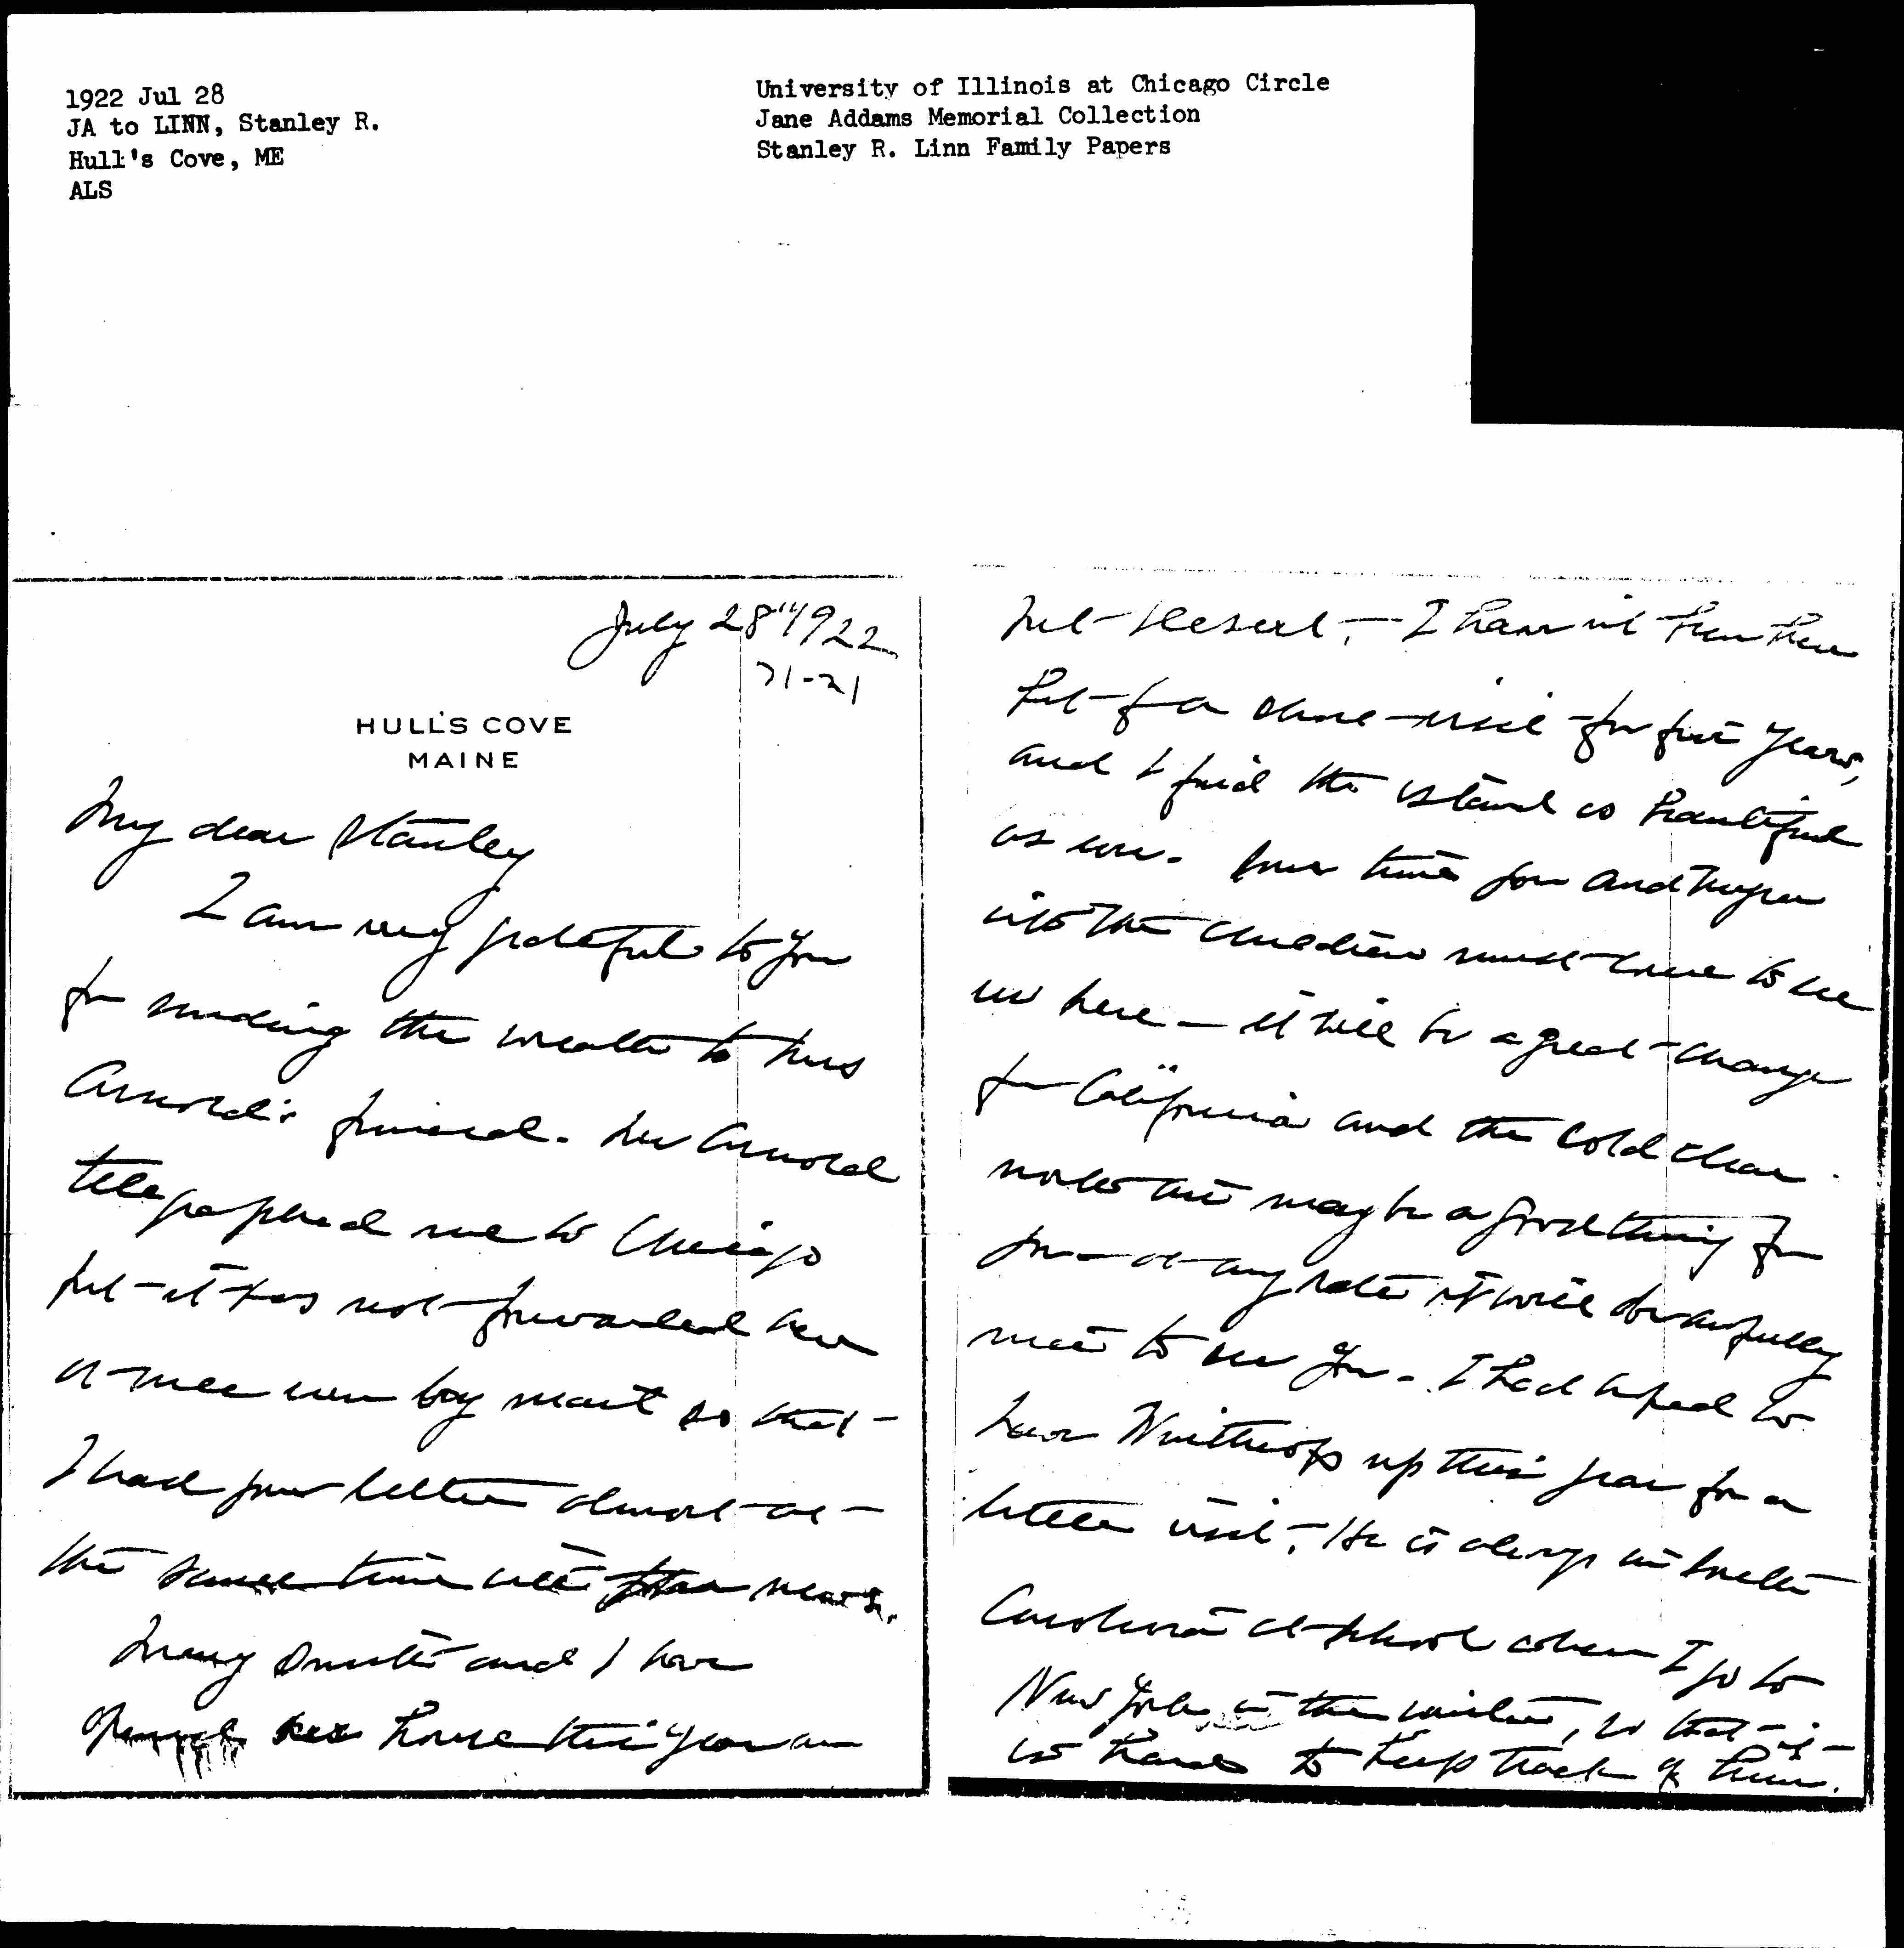 1922 Jul 28
JA to LINN, Stanley R.
Hull's Cove, ME
ALS
University of Illinois at Chicago Circle
Jane Addams Memorial Collection
Stanley R. Linn Family Papers
July 28" 1922
HULL'S COVE
MAINE
My dear Stanley
I am very grateful to you
for sending the wreath to Mrs
Arnold's funeral. Mr Arnold
telegraphed me to Chicago
but it was not forwarded here
so that
I had your letter almost at
the same time with the news.
Mary Smith and I have
opened her house this year on
Mt Desert, I have not been here
but for a short visit for five years,
and I find the island as beautiful
as ever. Some time you and Myra
with the children must come to see
us here — it will be a great change
for California and the cold clear
north air may be a good thing for
you — at any rate it will be awfully
nice to see you. I had hoped to
have Winthrop up this year for a
little visit, He is always in South
Carolina at school when I go to
New York in the winter, so that it
is hard to keep track of them.